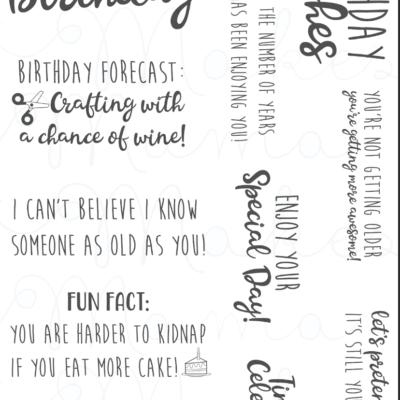 Birthday
BIRTHDAY FORECAST:
Crafting with
a chance of wine!
I CAN'T BELIEVE I KNOW
SOMEONE AS OLD AS YOU!
FUN FACT:
YOU ARE HARDER TO KIDNAP
IF YOU EAT MORE CAKE!
THE NUMBER OF YEARS
HAS BEEN ENJOYING YOU!
ENJOY YOUR
Special Day!
YOU'RE NOT GETTING OLDER
you're getting more awesome!
let's pretend
IT'S STILL YOU